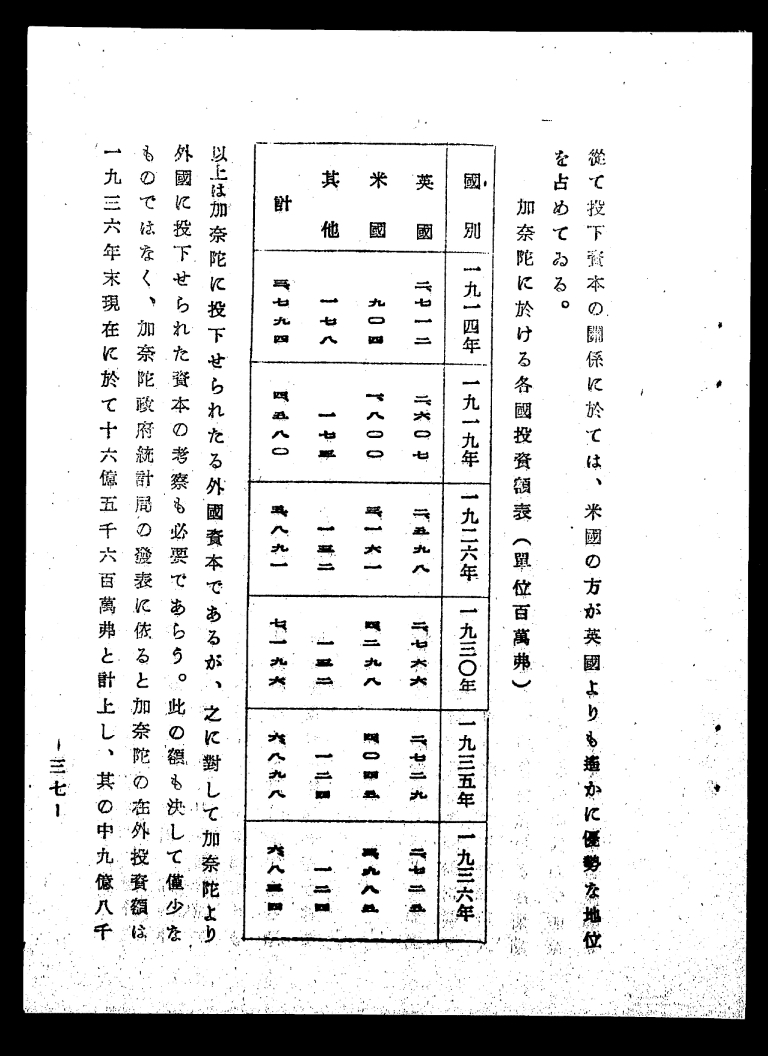 從て投下資本の關係に於ては、米國の方が英國よりも遙かに優勢な地位
を占めてゐる。
加奈陀に於ける各國投資額表（單位百萬弗）
國別 一九一四年 一九一九年 一九二六年 一九三〇年 一九三五年 一九三六年
英國 二、七一二 二、六〇七 二、五九八 二、七六六 二、七二九 二、七二五
米國 九〇四 一、八〇〇 三、一六一 四、二九八 四、〇四五 三、九八五
其他 一七八 一七三 一三二 一三二 一二四 一二四
計 三、七九四 四、五八〇 五、八九一 七、一九六 六、八九八 六、八三四
以上は加奈陀に投下せられたる外國資本であるが、之に對して加奈陀より
外國に投下せられた資本の考察も必要であらう。此の額も決して僅少な
ものではなく、加奈陀政府統計局の發表に依ると加奈陀の在外投資額は
一九三六年末現在に於て十六億五千六百萬弗と計上し、其の中九億八千
-三七-